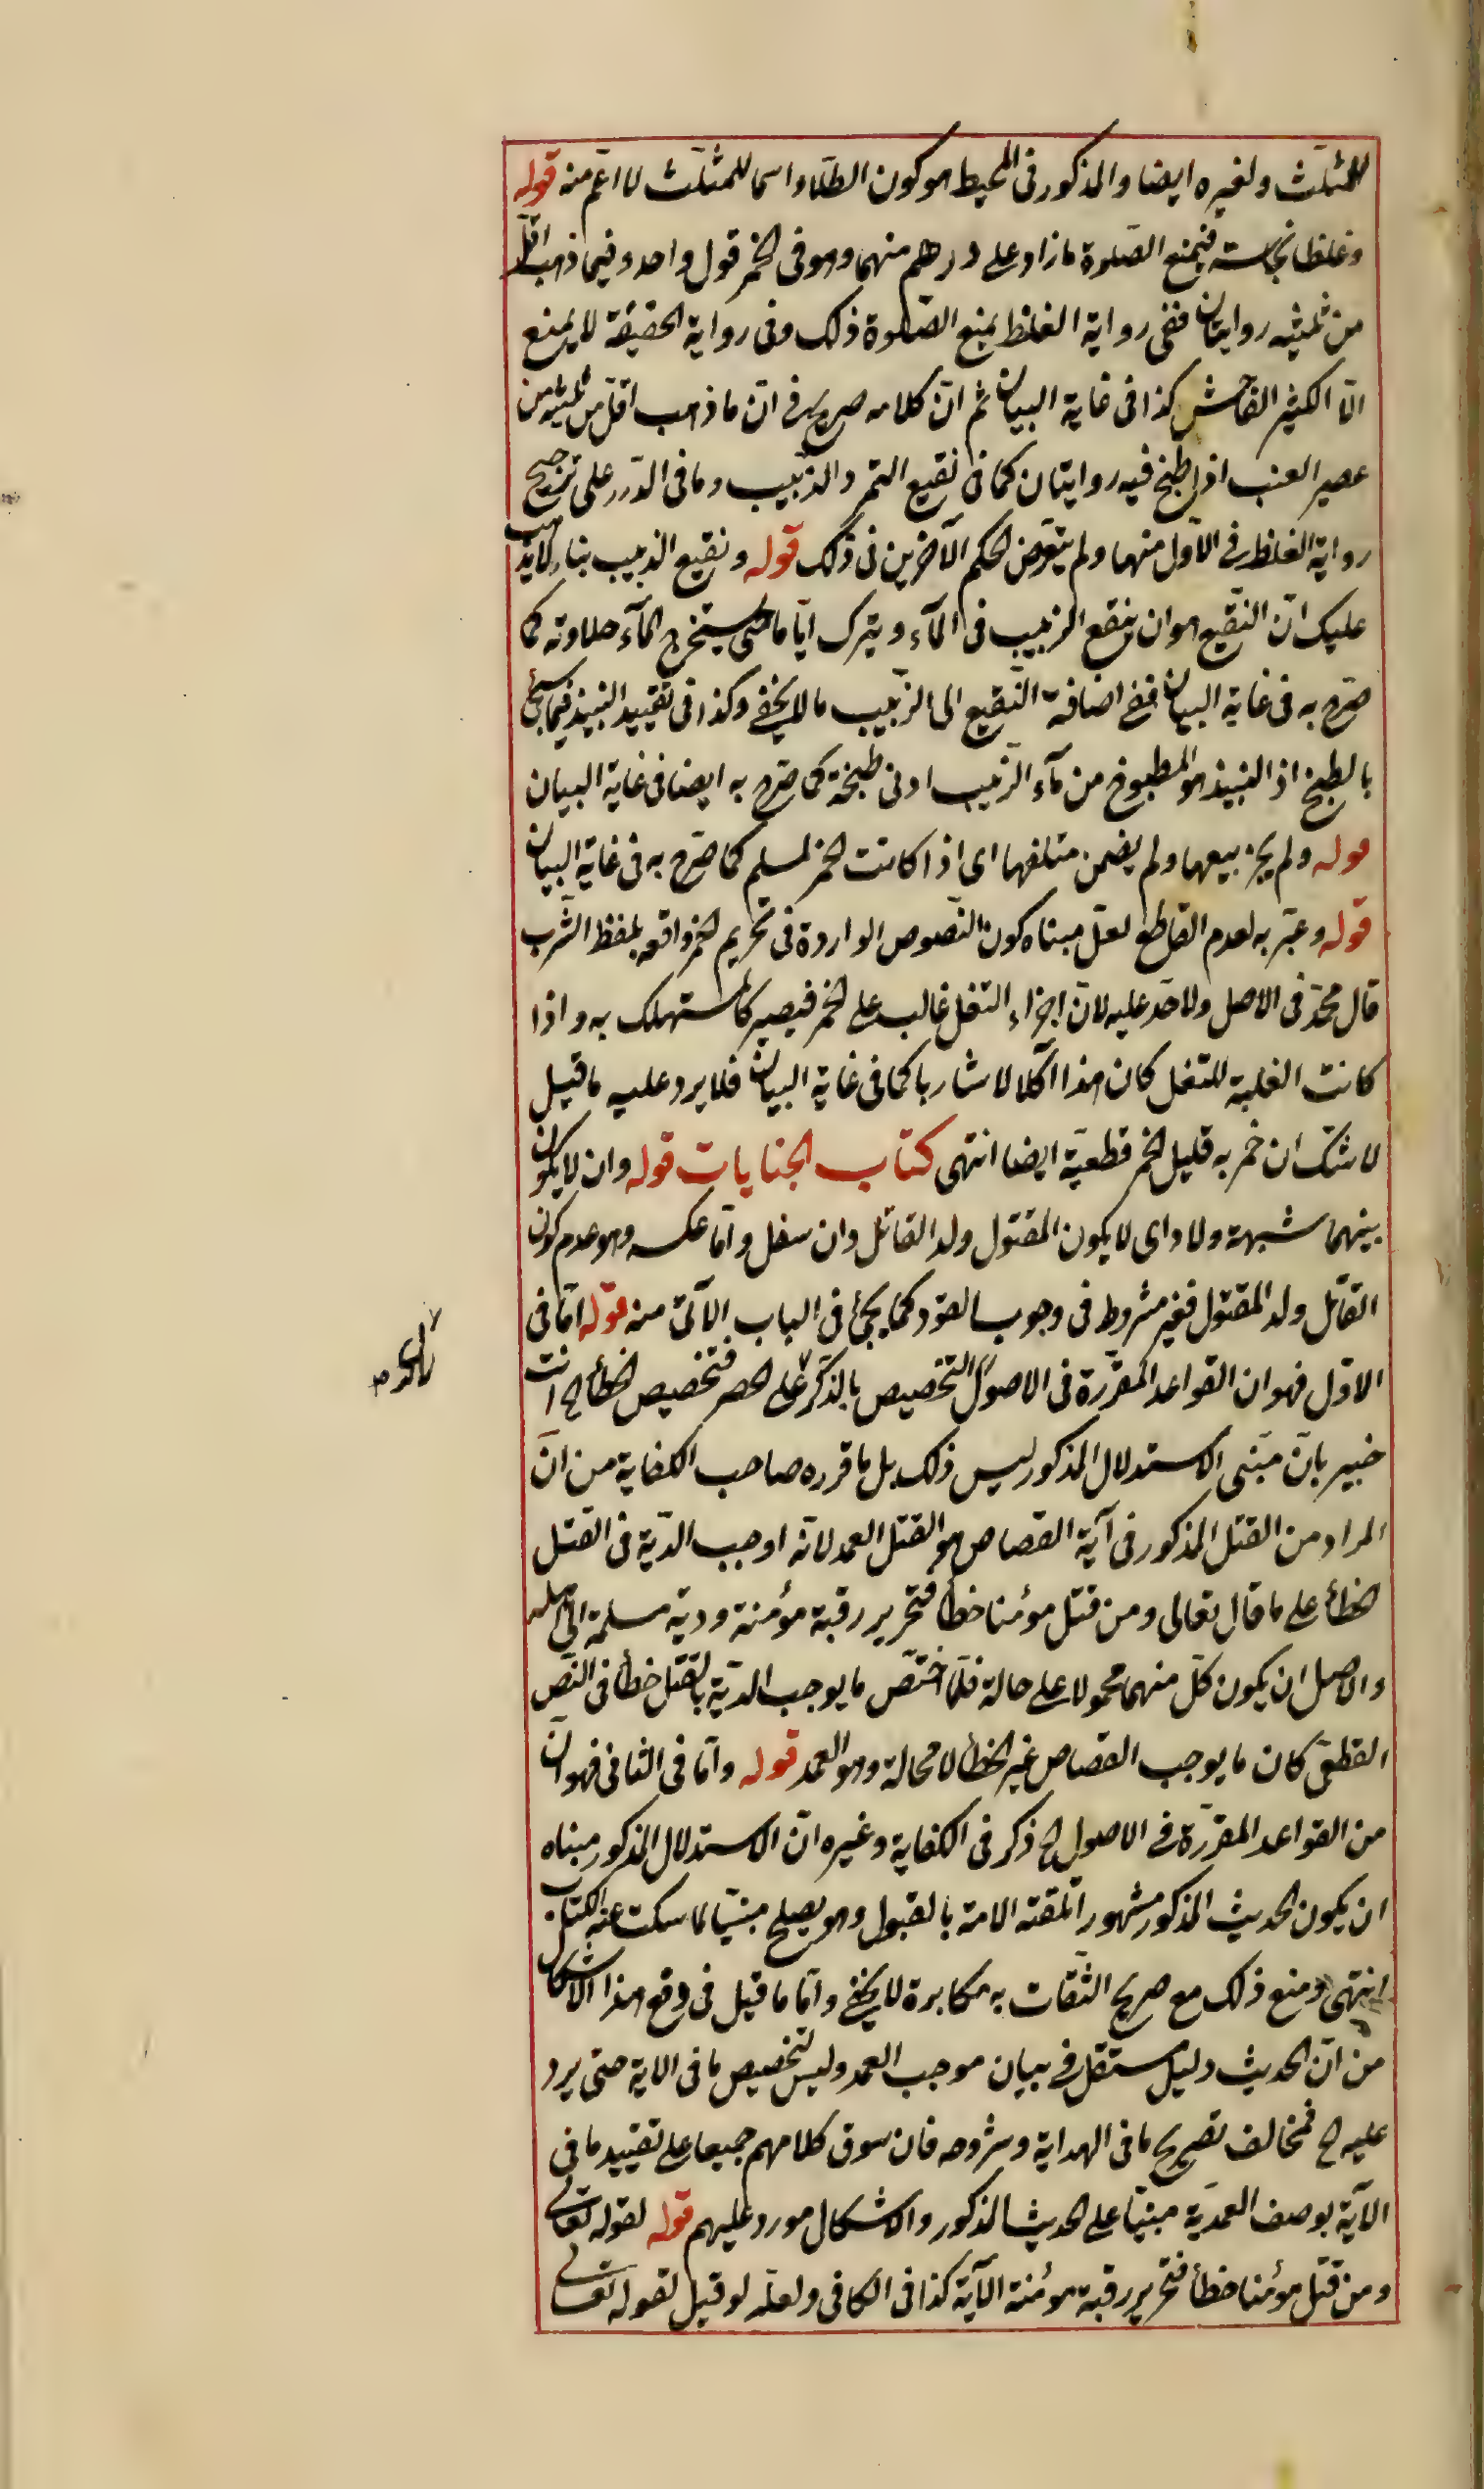 للمثلّث ولغيره ايضا والمذكور فى المحيط هو كون الطلاء اسما للمثلّث لا اعمّ منه قوله
وغلظا نجاسته فيمنع الصّلوة ما زاد على درهم منهما وهو فى الخمر قول واحد وفيما ذهب اقلّ
من ثلثيه روايتان ففى رواية الغلظ يمنع الصّلوة ذلك وفى رواية الخفيفة لا يمنع
الّا الكثير الفاحش كذا فى غاية البيان ثم انّ كلامه صريح فى انّ ما ذهب اقلّ من ثلثيه من
عصير العنب اذا طبخ فيه روايتان كما فى نقيع التمر والزّبيب وما فى الدّرر على ترجيح
رواية الغلظ فى الاول منهما ولم يتعرّض لحكم الآخرين فى ذلك قوله ونقيع الزبيب بناء لا يذهب
عليك انّ النّقيع هو ان ينقع الزبيب فى المآء ويترك ايّاما حتى يستخرج المآء حلاوته كما
صرّح به فى غاية البيان ففى اضافة النّقيع الى الزّبيب ما لا يخفى وكذا فى تقييد النبيذ فيما سيجئ
بالطبخ اذ النبيذ هو المطبوخ من مآء الزّبيب ادنى طبخة كما صرّح به ايضا فى غاية البيان
قوله ولم يجز بيعها ولم يضمن متلفها اى اذا كانت الخمر لمسلم كما صرّح به فى غاية البيان
قوله وعبّر به لعدم القاطع لعلّ مبناه كون النّصوص الواردة فى تحريم الخمر واقعه بلفظ الشّرب
قال محمّد فى الاصل ولا حدّ عليه لانّ اجزاء الثفل غالب على الخمر فيصير كالمستهلك به واذا
كانت الغلبة للثفل كان هذا آكلا لا شاربا كما فى غاية البيان فلا يرد عليه ما قيل
لا شكّ ان خمر به قليل الخمر قطعيّة ايضا انتهى كتاب الجنايات قوله وان لا يكون
بينهما شبهة ولاد اى لا يكون المقتول ولد القاتل وان سفل وامّا عكسه وهو عدم كون
القاتل ولد المقتول فغير مشروط فى وجوب القود كما يجئ فى الباب الآتى منه قوله امّا فى
الاوّل فهو ان القواعد المقرّرة فى الاصول التخصيص بالذّكر على الحصر فتخصيص الخطأ الخ انت
خبير بانّ مبنى الاستدلال المذكور ليس ذلك بل ما قرره صاحب الكفاية من انّ
المراد من القتل المذكور فى آية القصاص هو القتل العمد لانّه اوجب الدّية فى القتل
الخطأ على ما قال تعالى ومن قتل مؤمنا خطأ فتحرير رقبة مؤمنة ودية مسلمة الى اهله
والاصل ان يكون كلّ منهما محمولا على حالة فلمّا اختصّ ما يوجب الدّية بالقتل خطأ فى النّص
القطعىّ كان ما يوجب القصاص غير الخطأ لا محالة وهو العمد قوله وامّا فى الثانى فهو انّ
من القواعد المقرّرة فى الاصول الخ ذكر فى الكفاية وغيره انّ الاستدلال المذكور مبناه
ان يكون الحديث المذكور مشهورا تلقته الامة بالقبول وهو يصلح مبيّنا لما سكت عنه الكتاب
انتهى ومنع ذلك مع صريح الثّقات به مكابرة لا يخفى وامّا ما قيل فى دفع هذا الاشكال
من انّ الحديث دليل مستقل فى بيان موجب العمد وليس لتخصيص ما فى الاية حتى يرد
عليه الخ فمخالف تصريح ما فى الهداية وشروحه فان سوق كلامهم جميعا على تقييد ما فى
الآية بوصف العمديّة مبنيّا على الحديث المذكور والاشكال مورد عليهم قوله لقوله تعالى
ومن قتل مؤمنا خطأ فتحرير رقبة مؤمنة الآية كذا فى الكافى ولعلّه لو قيل لقوله تعالى